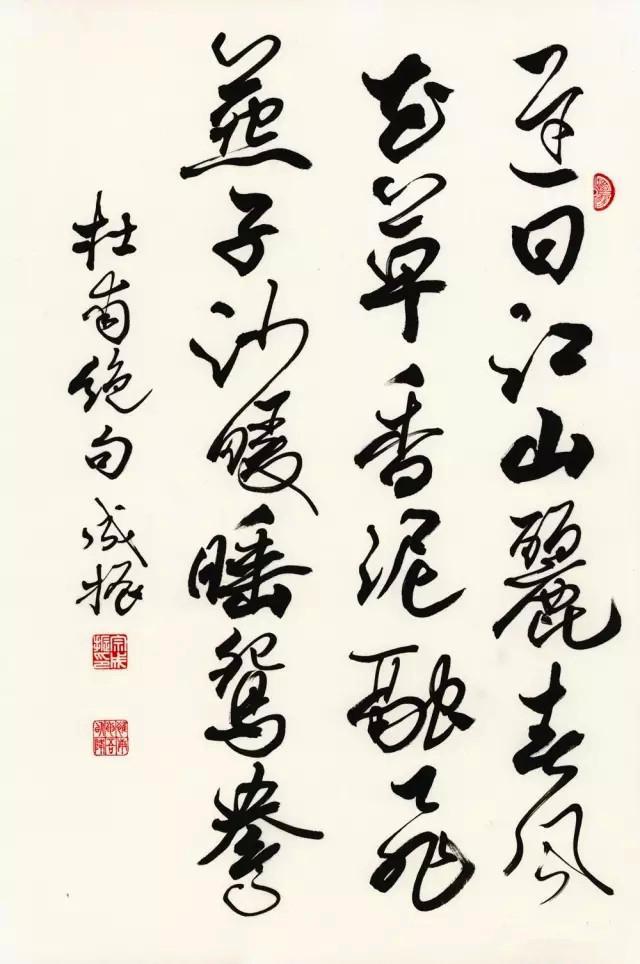 遲日江山麗春風
花草香泥融飛
燕子沙暖睡鴛鴦
杜甫絕句 成振
宗成振印